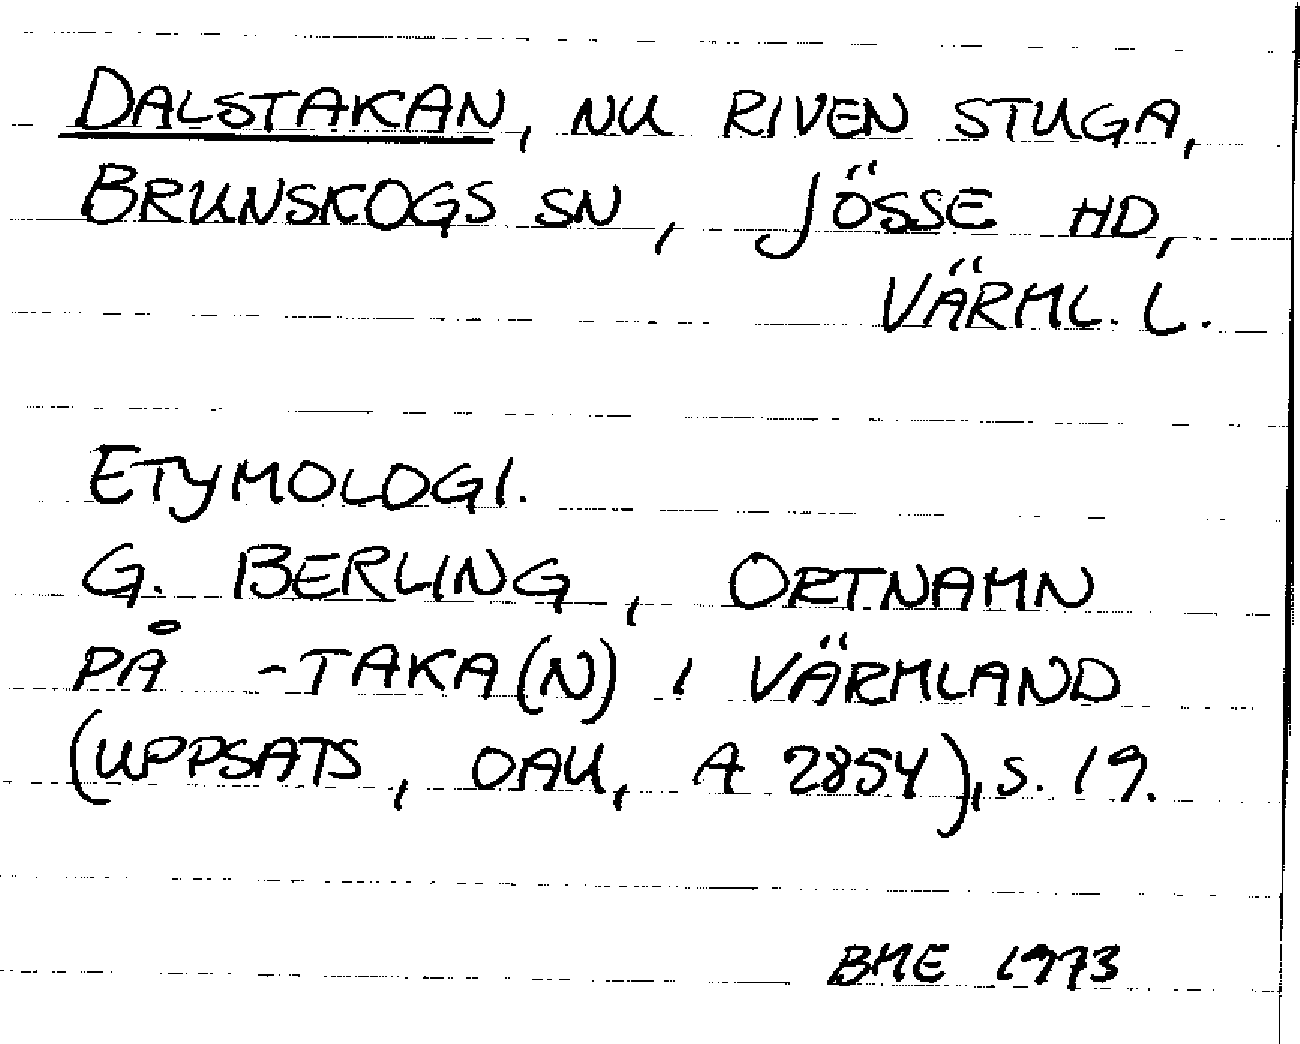 DALSTAKAN, NU RIVEN STUGA,
BRUNSKOGS SN, JÖSSE HD,
VÄRML. L.
ETYMOLOGI.
G. BERLING, ORTNAMN
PÅ -TAKA(N) I VÄRMLAND
(UPPSATS, OAU, A 2854), S. 19.
BME 1973